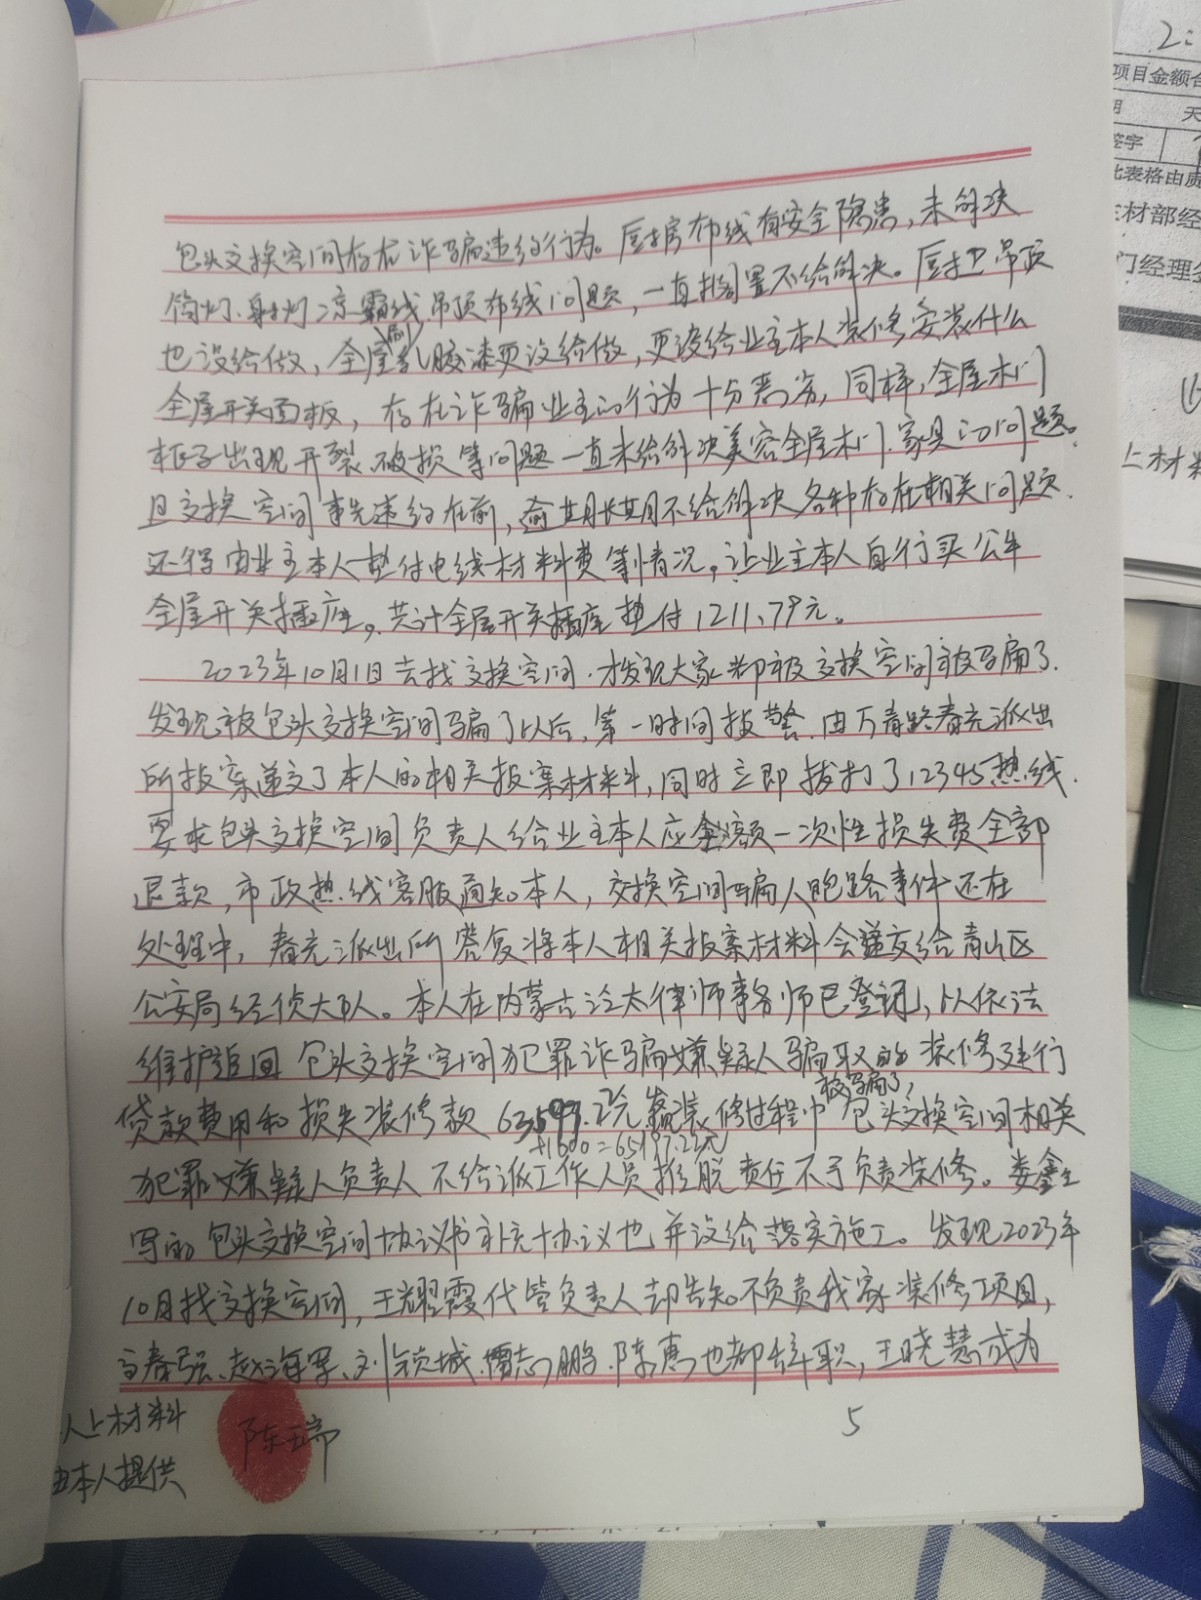 包头交换空间存在诈骗违约行为。厨房布线有安全隐患,未解决
筒灯、射灯凉霸线吊顶布线问题,一直搁置不给解决。厨卫吊顶
也没给做,全屋刷乳胶漆更没给做,更没给业主本人装修安装什么
全屋开关面板,存在诈骗业主的行为十分恶劣,同样,全屋木门
柜子出现开裂、破损等问题一直未给解决美容全屋木门、家具门问题。
且交换空间事先违约在前,逾期长期不给解决各种存在相关问题.
还得由业主本人垫付电线材料费等情况,让业主本人自行买公牛
全屋开关插座。共计全屋开关插座垫付1211.79元。
2023年10月1日去找交换空间.才发现大家都被交换空间被骗了.
发现被包头交换空间骗了以后,第一时间报警.由万青路春光派出
所报案递交了本人的相关报案材料,同时立即拨打了12345热线.
要求包头交换空间负责人给业主本人应全额一次性损失费全部
退款,市政热线客服简知本人,交换空间骗人跑路事件还在
处理中,春光派出所答复将本人相关报案材料会递交给青山区
公安局经侦大队。本人在内蒙古论太律师事务师已登记,以依法
维护追回包头交换空间犯罪诈骗嫌疑人骗取的装修建行
被骗了,
贷款费用和损失装修款63597.2元 装修过程中包头交换空间相关
+1600=65197.2元
犯罪嫌疑人负责人不给派工作人员推脱责任不予负责装修。娄鑫
写的包头交换空间协议书补充协议也并没给落实施工。发现2023年
10月找交换空间,王耀霞代管负责人却告知不负责我家装修项目,
春强、赵海军、刘锁城、志鹏、陈惠也都辞职,王晓慧成为
以上材料
由本人提供
陈瑞
5
2:
项目金额合
天
签字
此表格由质
主材部经
门经理签
上材料